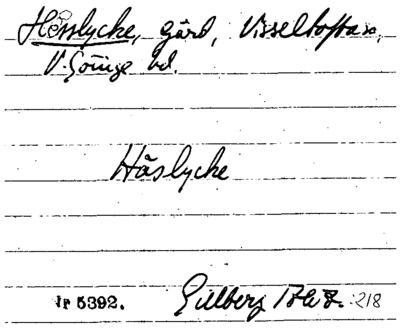 Hesslycke, gård, Visseltofta sn,
V. Göinge hd.
Håslycke
Jr 5392. Gillberg 218